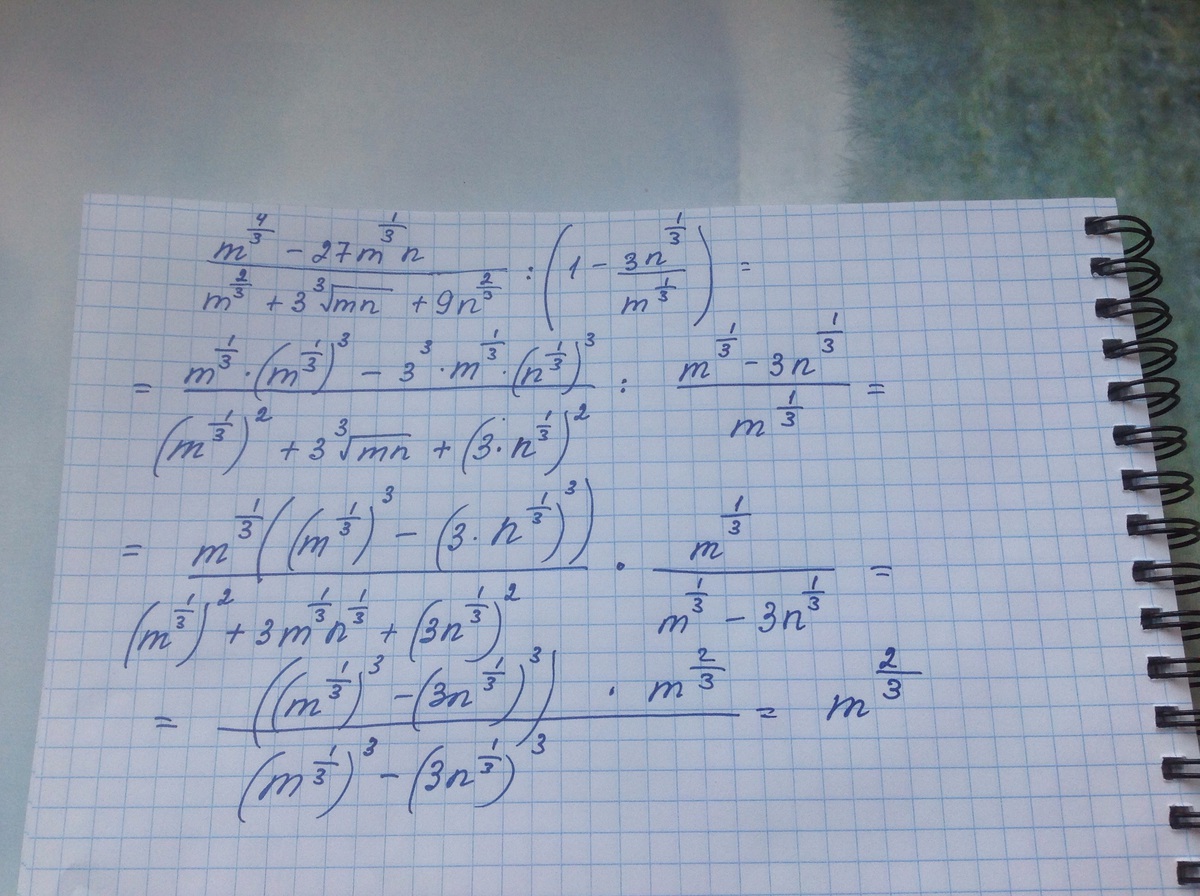 \frac{m^{\frac{4}{3}} - 27m^{\frac{1}{3}}n}{m^{\frac{2}{3}} + 3\sqrt[3]{mn} + 9n^{\frac{2}{3}}} : \left(1 - \frac{3n^{\frac{1}{3}}}{m^{\frac{1}{3}}}\right) =
= \frac{m^{\frac{1}{3}} \cdot (m^{\frac{1}{3}})^3 - 3^3 \cdot m^{\frac{1}{3}} \cdot (n^{\frac{1}{3}})^3}{(m^{\frac{1}{3}})^2 + 3\sqrt[3]{mn} + (3 \cdot n^{\frac{1}{3}})^2} : \frac{m^{\frac{1}{3}} - 3n^{\frac{1}{3}}}{m^{\frac{1}{3}}} =
= \frac{m^{\frac{1}{3}}((m^{\frac{1}{3}})^3 - (3 \cdot n^{\frac{1}{3}})^3)}{(m^{\frac{1}{3}})^2 + 3m^{\frac{1}{3}}n^{\frac{1}{3}} + (3n^{\frac{1}{3}})^2} \cdot \frac{m^{\frac{1}{3}}}{m^{\frac{1}{3}} - 3n^{\frac{1}{3}}} =
= \frac{((m^{\frac{1}{3}})^3 - (3n^{\frac{1}{3}})^3) \cdot m^{\frac{2}{3}}}{(m^{\frac{1}{3}})^3 - (3n^{\frac{1}{3}})^3} = m^{\frac{2}{3}}